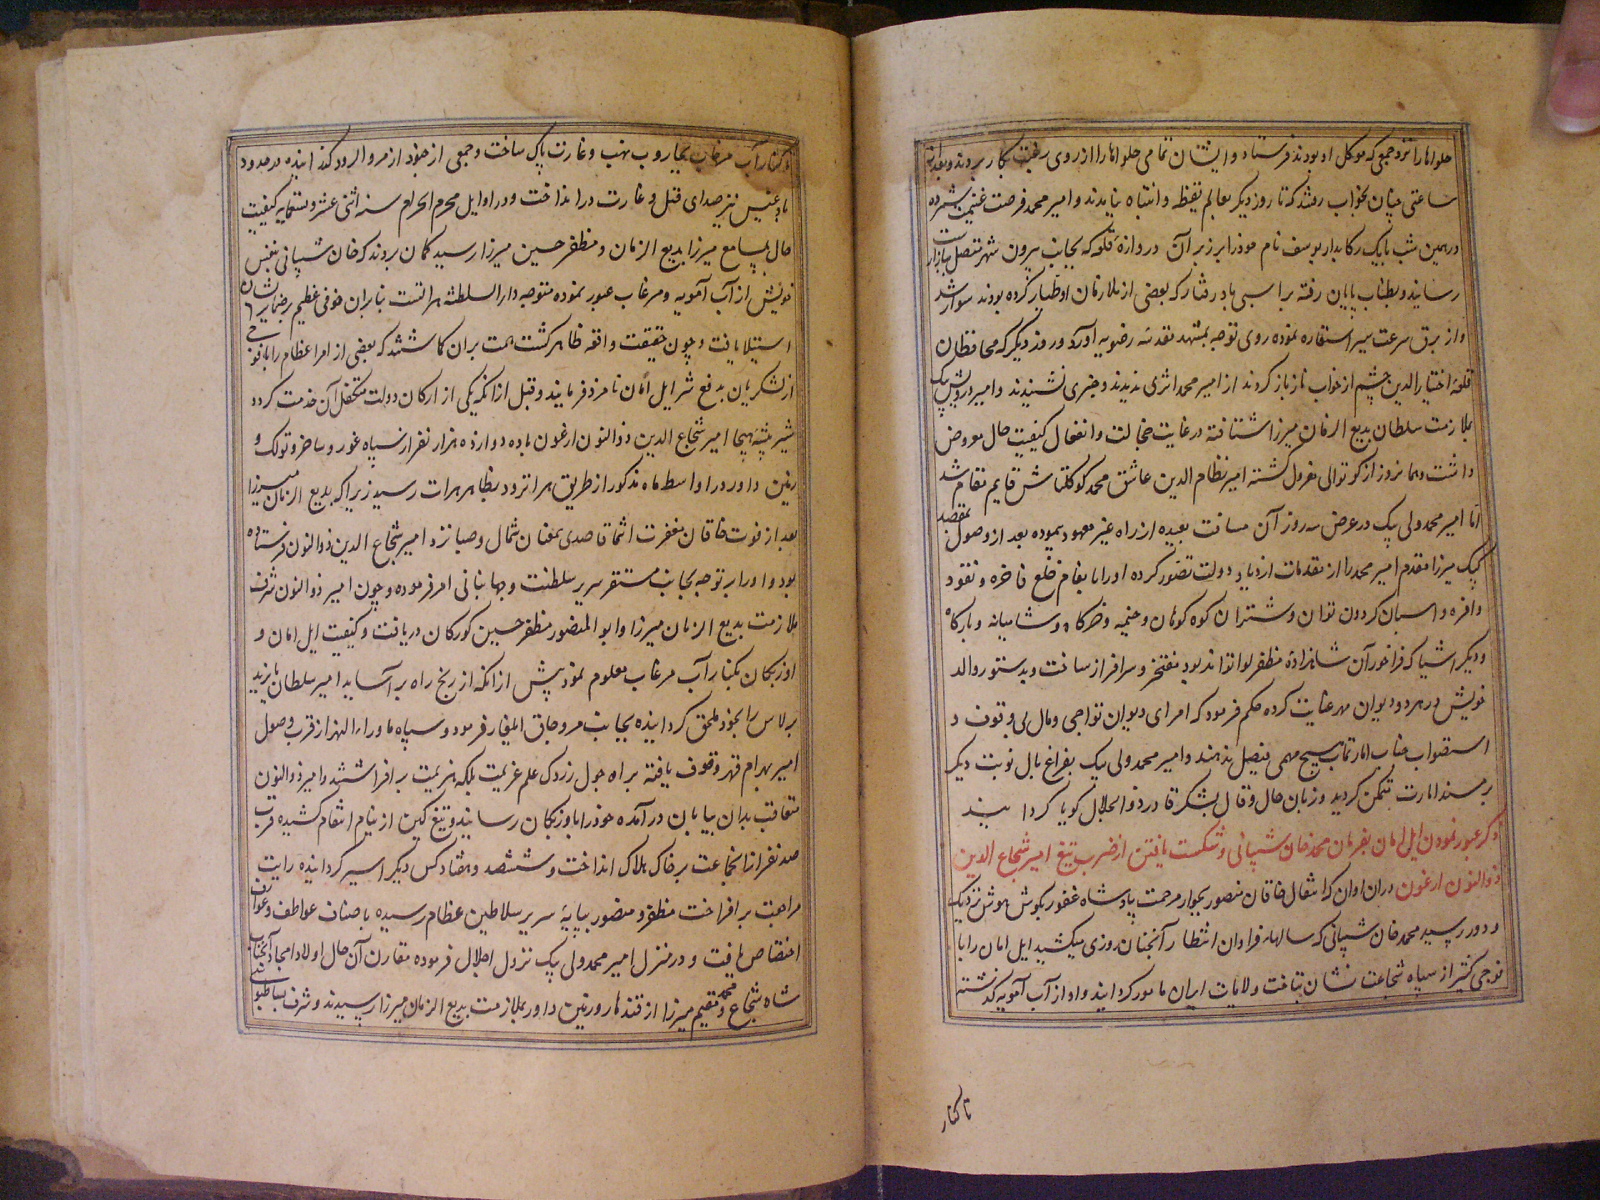 حلواها را نزد جمعی که موکل او بودند فرستاد و ایشان تمامی حلواها را از روی رغبت بکار بردند و بعد از
ساعتی چنان بخواب رفتند که تا روز دیگر بعالم تیقظ و انتباه نیامدند و امیر محمد فرصت غنیمت شمرده
در همین شب با یک رکابدار یوسف نام خود را بر زبر آن دروازهٔ قلعه که بجانب بیرون شهر متصل ببازار است
رسانید و بطناب پایان رفته بر اسبی باد رفتار که بعضی از ملازمان او طیار کرده بودند سوار شد
و از برق سرعت سیر استعاره نموده روی توجه بمشهد مقدسه رضویه آورد و روز دیگر که محافظان
قلعه اختیار الدین چشم از خواب ناز باز کردند از امیر محمد اثری ندیدند و خبری نشنیدند و امیر درویش بیک
بملازمت سلطان بدیع الزمان میرزا شتافته در غایت خجالت و انفعال کیفیت حال معروض
داشت و همانروز از کوتوالی معزول گشته امیر نظام الدین عاشق محمد کوکلتاش قایم مقام شد
اما امیر محمد ولی بیک در عرض سه روز آن مسافت بعیده از راه غیر معهود پیموده بعد از وصول بمقصد
کپک میرزا مقدم امیر محمد را از مقدمات ازدیاد دولت تصور کرده او را بانعام خلع فاخره و نقود
وافره و اسبان گردون توان و شتران کوه کوهان و خیمه و خرکاه و شامیانه و بارکاه
و دیگر اشیا که فراخور آن شاهزادهٔ مظفر لوا تواند بود مفتخر و سرافراز ساخت و بدستور والد
خویش در هر دو دیوان مهر عنایت کرده حکم فرمود که امرای دیوان تواجی و مال بی وقوف و
استصواب جناب امارتمآب هیچ مهمی فیصل ندهند و امیر محمد ولی بیک بفراغ بال نوبت دیگر
بر مسند امارت متمکن گردید و زبان حال و قال بشکر قادر ذوالجلال گویا گردانید
ذکر عبور نمودن ایل امان بفرمان محمد خان شیبانی و شکست یافتن از ضرب تیغ امیر شجاع الدین
ذوالنون ارغون در ان اوان که انتقال خاقان منصور بجوار مرحمت پادشاه غفور بگوش هوش نزدیک
و دور رسید محمد خان شیبانی که سالهاء فراوان انتظار آنچنان روزی میکشید ایل امان را با
فوجی کثیر از سپاه شجاعت نشان بتاخت ولایات ایران مامور گردانید و او از آب آمویه گذشته
تا کنار
و کنار آب مرغاب بجاروب نهب و غارت پاک ساخت و جمعی از جنود از مرو الرود گذرانیده در حدود
بادغیس نیز صدای قتل و غارت در انداخت و در اوایل محرم الحرام سنه اثنی عشر و تسعمایه کیفیت
حال بمسامع میرزا بدیع الزمان و مظفر حسین میرزا رسید گمان بردند که خان شیبانی بنفس
خویش از آب آمویه و مرغاب عبور نموده متوجه دار السلطنه هراتست بنابران خوفی عظیم بر ضمایر ایشان
استیلا یافت و چون حقیقت واقعه ظاهر گشت همت بران گماشتند که بعضی از امراء عظام را با فوجی
از لشکریان بدفع شر ایل امان نامزد فرمایند و قبل از انکه یکی از ارکان دولت متکفل آن خدمت گردد
شیر بیشهٔ هیجا امیر شجاع الدین ذوالنون ارغون با ده دوازده هزار نفر از سپاه غور و ساخر و تولک و
زمین داور در اواسط ماه مذکور از طریق هراترود بظاهر هرات رسید زیرا که بدیع الزمان میرزا
بعد از فوت خاقان مغفرت انتما قاصدی بمعنان شمال و صبا نزد امیر شجاع الدین ذوالنون فرستاده
بود و او را بر توجه بجانب مستقر سریر سلطنت و جهانبانی امر فرموده و چون امیر ذوالنون شرف
ملازمت بدیع الزمان میرزا و ابو المنصور مظفر حسین کورکان دریافت و کیفیت ایل امان و
اوزبکان بکنار آب مرغاب معلوم نمود پیش از انکه از رنج راه برآساید امیر سلطان بایزید
برلاس را بخود ملحق گردانیده بجانب مروجاق ایلغار فرمود و سپاه ماوراء النهر از قرب وصول
امیر بهرام قهر وقوف یافته براه چول زردک علم عزیمت بلکه هزیمت برافراشتند و امیر ذوالنون
متعاقب بدان بیابان در آمده خود را باوزبکان رسانید و تیغ کین از نیام انتقام کشیده قرب
صد نفر از انجماعت بر خاک هلاک انداخت و ششصد و هفتاد کس دیگر اسیر گردانیده رایت
مراجعت برافراخت مظفر و منصور بپایهٔ سریر سلاطین عظام رسیده باصناف عواطف و عوارف
اختصاص یافت و در منزل امیر محمد ولی بیک نزول اجلال فرموده مقارن آن حال اولاد امجاد آنجناب
شاه شجاع و محمد مقیم میرزا از قندهار و زمین داور بملازمت بدیع الزمان میرزا رسیدند و شرف بساطبوسی